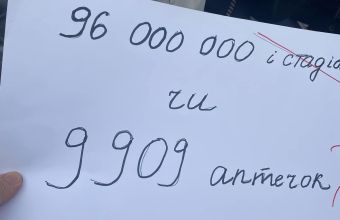 96 000 000 і стадіо
чи
9909 аптечок